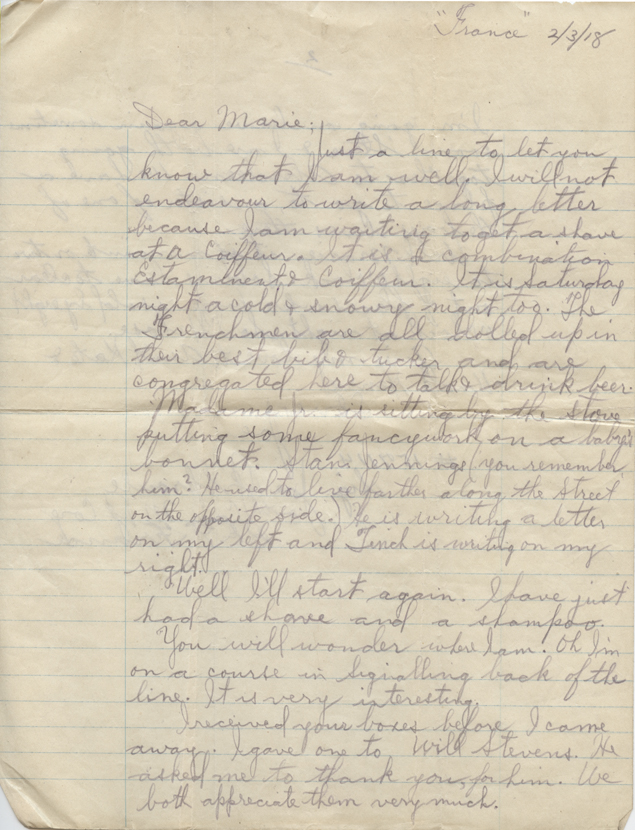 "France" 2/3/18
2
Dear Marie;
Just a line to let you
know that I am well. I will not
endeavour to write a long letter
because I am waiting to get a shave
at a Coiffeur. It is a combination
Estaminent & Coiffeur. It is Saturday
night a cold & snowy night too. The
Frenchmen are all dolled up in
their best bib & tucker and are
congregated here to talk & drink beer.
Madame Jr. is sitting by the stove
putting some fancywork on a baby's
bonnet. Stan. Jennings (you remember
him? He used to live farther along the Street
on the opposite side.) He is writing a letter
on my left and Tinch is writing on my
right.
Well I'll start again. I have just
had a shave and a shampoo.
You will wonder where I am. Oh I'm
on a course in Signalling back of the
line. It is very interesting.
I received your boxes before I came
away. I gave one to Will Stevens. He
asked me to thank you, for him. We
both appreciate them very much.